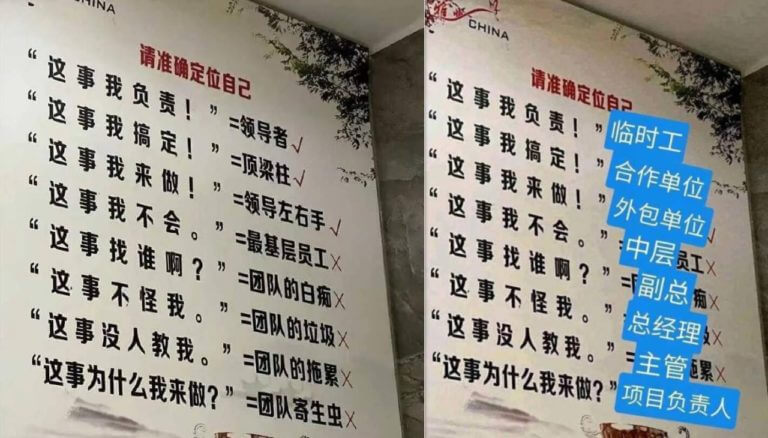 CHINA
请准确定位自己
“这事我负责！”=领导者√
“这事我搞定！”=顶梁柱√
“这事我来做！”=领导左右手√
“这事我不会。”=最基层员工×
“这事找谁啊？”=团队的白痴×
“这事不怪我。”=团队的垃圾×
“这事没人教我。”=团队的拖累×
“这事为什么我来做？”=团队寄生虫×
CHINA
请准确定位自己
“这事我负责！”临时工
“这事我搞定！”合作单位
“这事我来做！”外包单位√
“这事我不会。”中层员工×
“这事找谁啊？”副总痴×
“这事不怪我。”总经理圾×
“这事没人教我。”主管拖累×
“这事为什么我来做？”项目负责人